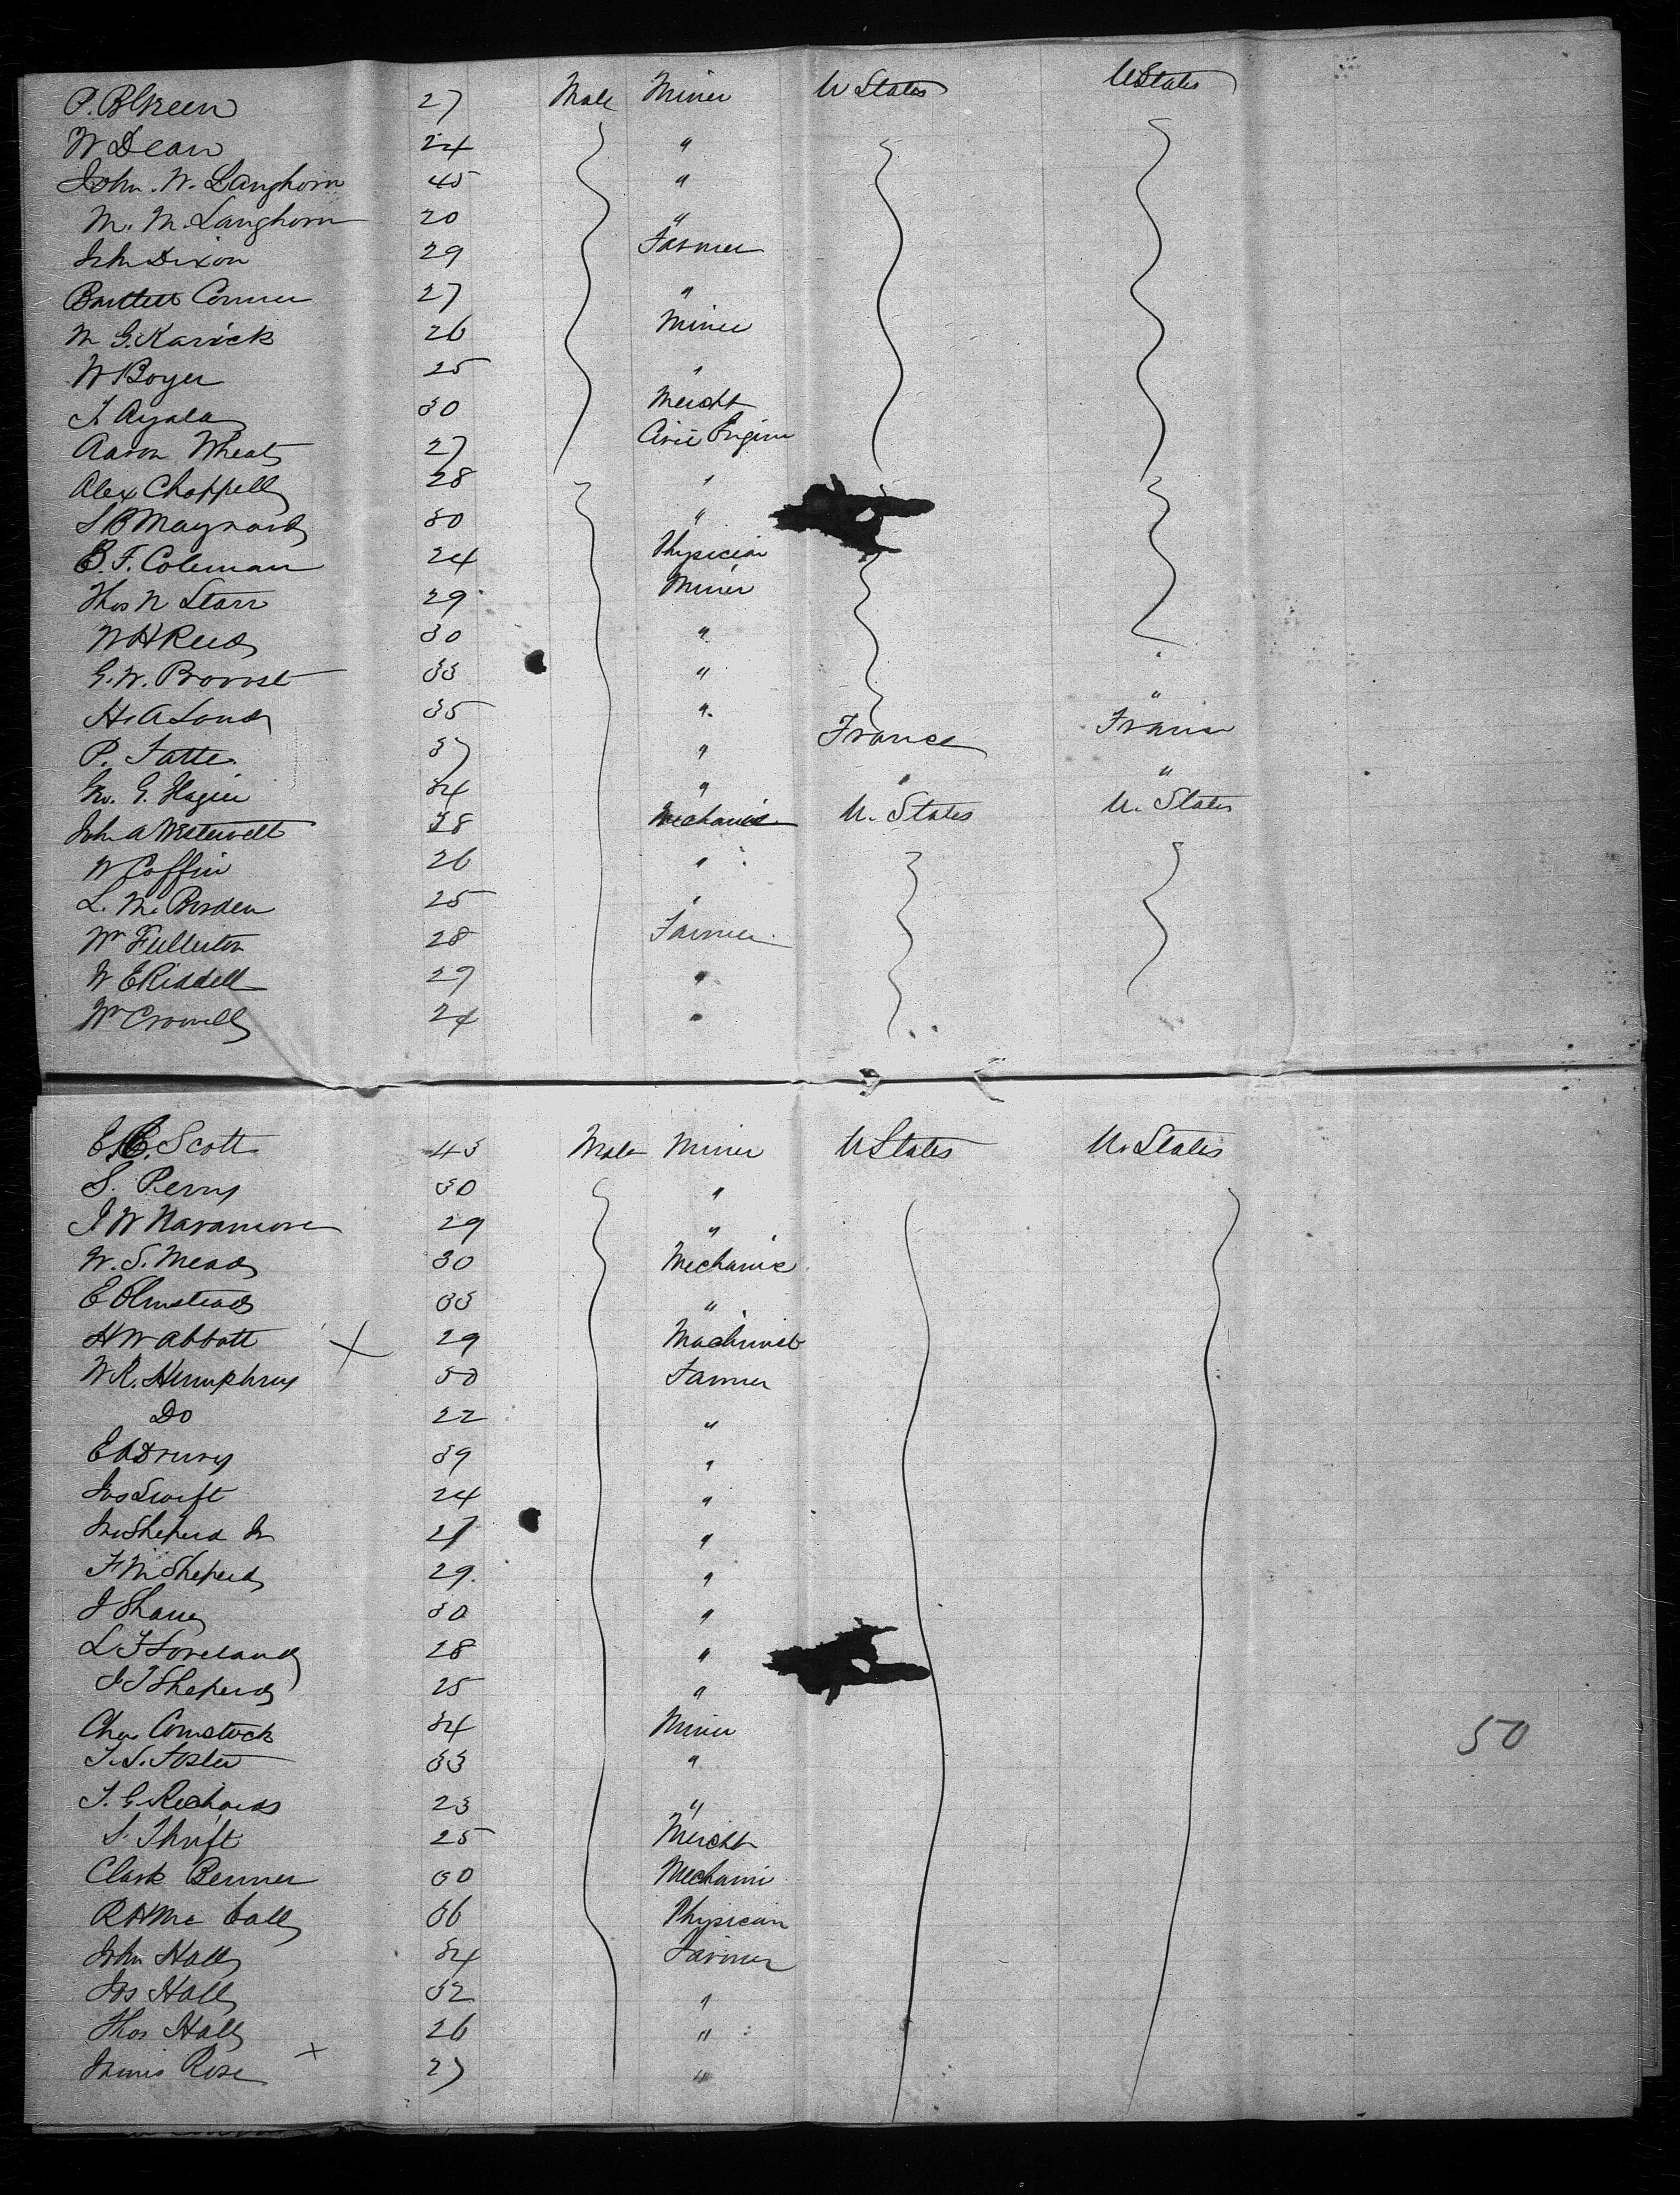 P. B Green 27 Male Miner U States U States
W Dean 24 "
John. W. Langhorn 45 "
M. M. Langhorn 20 "
John Dixon 29 Farmer
Bartlett Conner 27 "
M G. Karrick 26 Miner
W Boyer 25 "
T. Ayala 30 Mercht
Aaron Wheat 27 Civil Engine
Alex Chappell 28 "
S B Maynard 30 "
B. F. Coleman 24 Physician
Thos N Starr 29 Miner
W H Reed 30 "
G. W. Provost 33 " "
H. A Lond 35 " "
P. Fatte. 37 " France France
G. Hagie 34 " " "
John A Westervelt 38 Mechanic U. States U. States
W Coffin 26 "
L. M. Borden 25 "
Wm Fullerton 28 Farmer
W E Riddell 29 "
Wm Crowell 24 "
E. Scott 43 Male Miner U States U. States
S. Perry 30 "
J W Naramore 29 "
W. S. Mead 30 Mechanic
E Olmstead 33 "
H W Abbott X 29 Machinist
W R. Humphrey 50 Farmer
Do 22 "
E A Drury 39 "
Jos Swift 24 "
Sheperd Jr 27 "
F M Sheperd 29. "
J Shaw 30 "
L F Loveland 28 "
J T Sheperd 25 "
Chas Comstock 34 Miner
T. S. Foster 33 " 50
T. G. Richards 23 "
S. Thrift 25 Mercht
Clark Benner 30 Mechanic
R H Mc Call 36 Physician
John Hall 34 Farmer
Jos Hall 32 "
Thos Hall 26 "
James Rose x 27 "